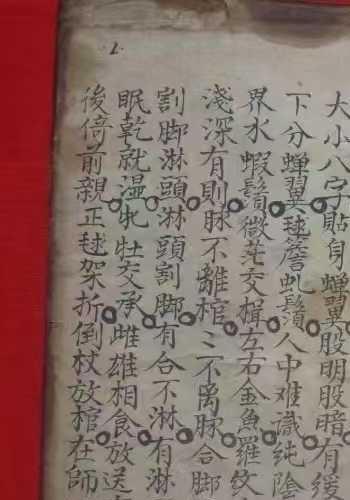 2
大小八字貼身蟬翼股明股暗有緩
下分蟬翼毬簷虬鬚人中难識純陰
界水蝦鬚微茫交揖左右金魚羅紋
淺深有則脉不離棺〻不离脉合脚
割脚淋頭淋頭割脚有合不淋有淋
眠乾就湿牝牡交承雌雄相食放送
後倚前親正毬架折倒杖放棺在師